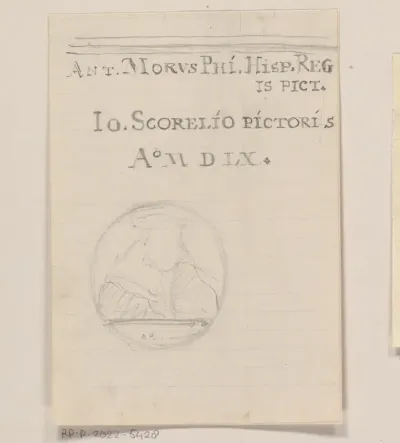 ANT. MORVS PHI. HISP. REG
IS PICT.
IO. SCORELIO PICTORIS
Aº M D LX.
RP-P-2022-5428